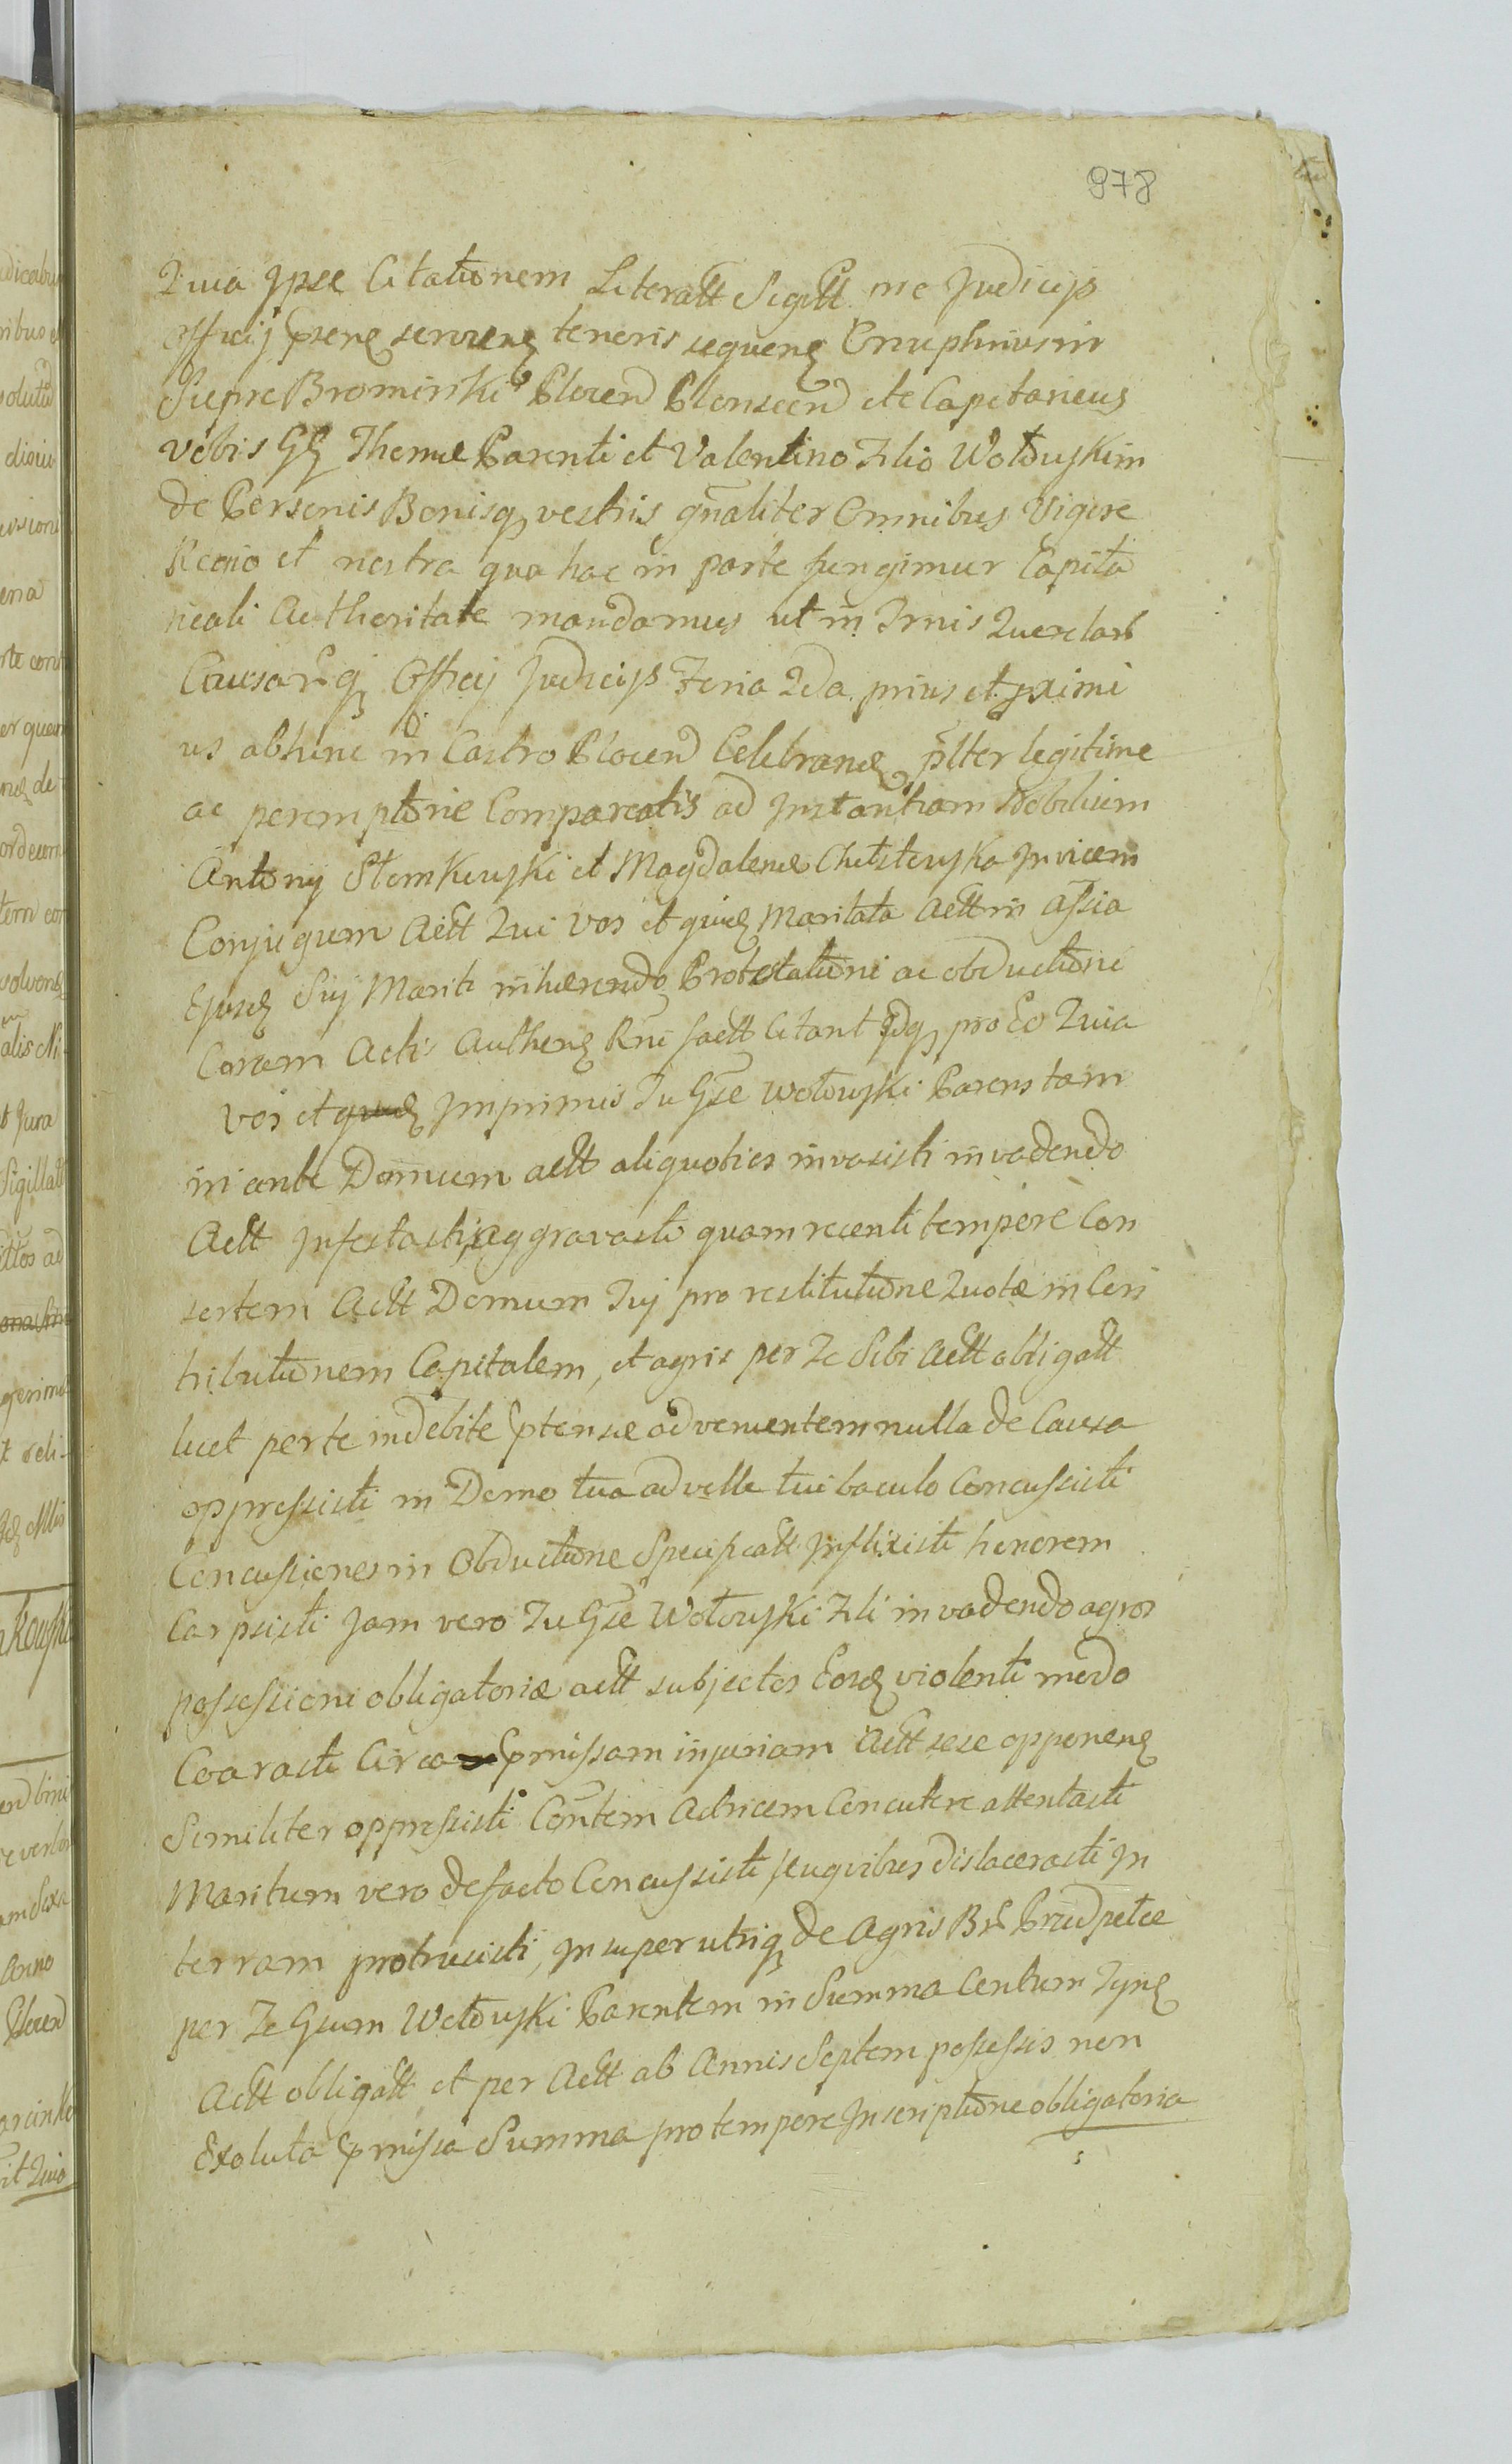 978
Quia Ipse Citationem Literatt Sigtt me Judicijs
Officij pseñ serviend teneris sequeñ Onuphrius in
Siepre Brominski Plocen Plonscen etc Capitaneus
vobis GG Thomæ Parenti et Valentino Filio Wołowskim
de Personis Bonisq vestris gnaliter Omnibus Vigore
Regio et nostra qua hac in parte fungimur Capita
neali Authoritate mandamus ut in Trnis Querelarb
Causarq Officij Judicijs Feria 2da prius et pximi
us abhinc in Castro Plocen Celebrand plter legitime
ac peremptorie Compareatis ad Instantiam Nobilium
Antonij Słomkowski et Magdalenæ Chelstowska Invicem
Conjugum Actt Qui vos et quivis Maritata Actt in Assia
Ejusd Sui Mariti inhærendo Protestationi ac obductioni
Coram Actis Authen Rni factt Citant Idq pro Eo Quia
vos et Imprimis Tu Gse Wołowski Parens tam
in ante Domum actt aliquoties invasisti invadendo
Actt Infestasti, aggravasti quam recenti tempore Con
sortem Actt Domum Tuj pro restitutione Quotæ in Con
tributionem Capitalem, et agris per Te Sibi Actt obligatt
licet per te indebite Extensæ advenientem nulla de Causa
oppressisti in Domo tua ad velle tui baculo Concussisti
Concussiones in Obductione Specificatt Inflixisti honorem
Carpsisti Jam vero Tu Gse Wołowski Fili invadendo agros
possessioni obligatoriæ actt subjectos Eosd violenti modo
Coarasti Circa Pmissam injuriam Actt sese opponend
Similiter oppressisti Contem Actricem Concutere attentasti
Maritum vero de facto Concussisti sevqvibus dislacerasti In
terram protrusisti, Insuper utriq de Agris BS Przedpełce
per Te Gsum Wołowski Parentem in Summa Centum Tynf
Actt obligatt et per Actt ab Annis Septem possessis non
Exoluta Pmissa Summa pro tempore Inscriptione obligatoria